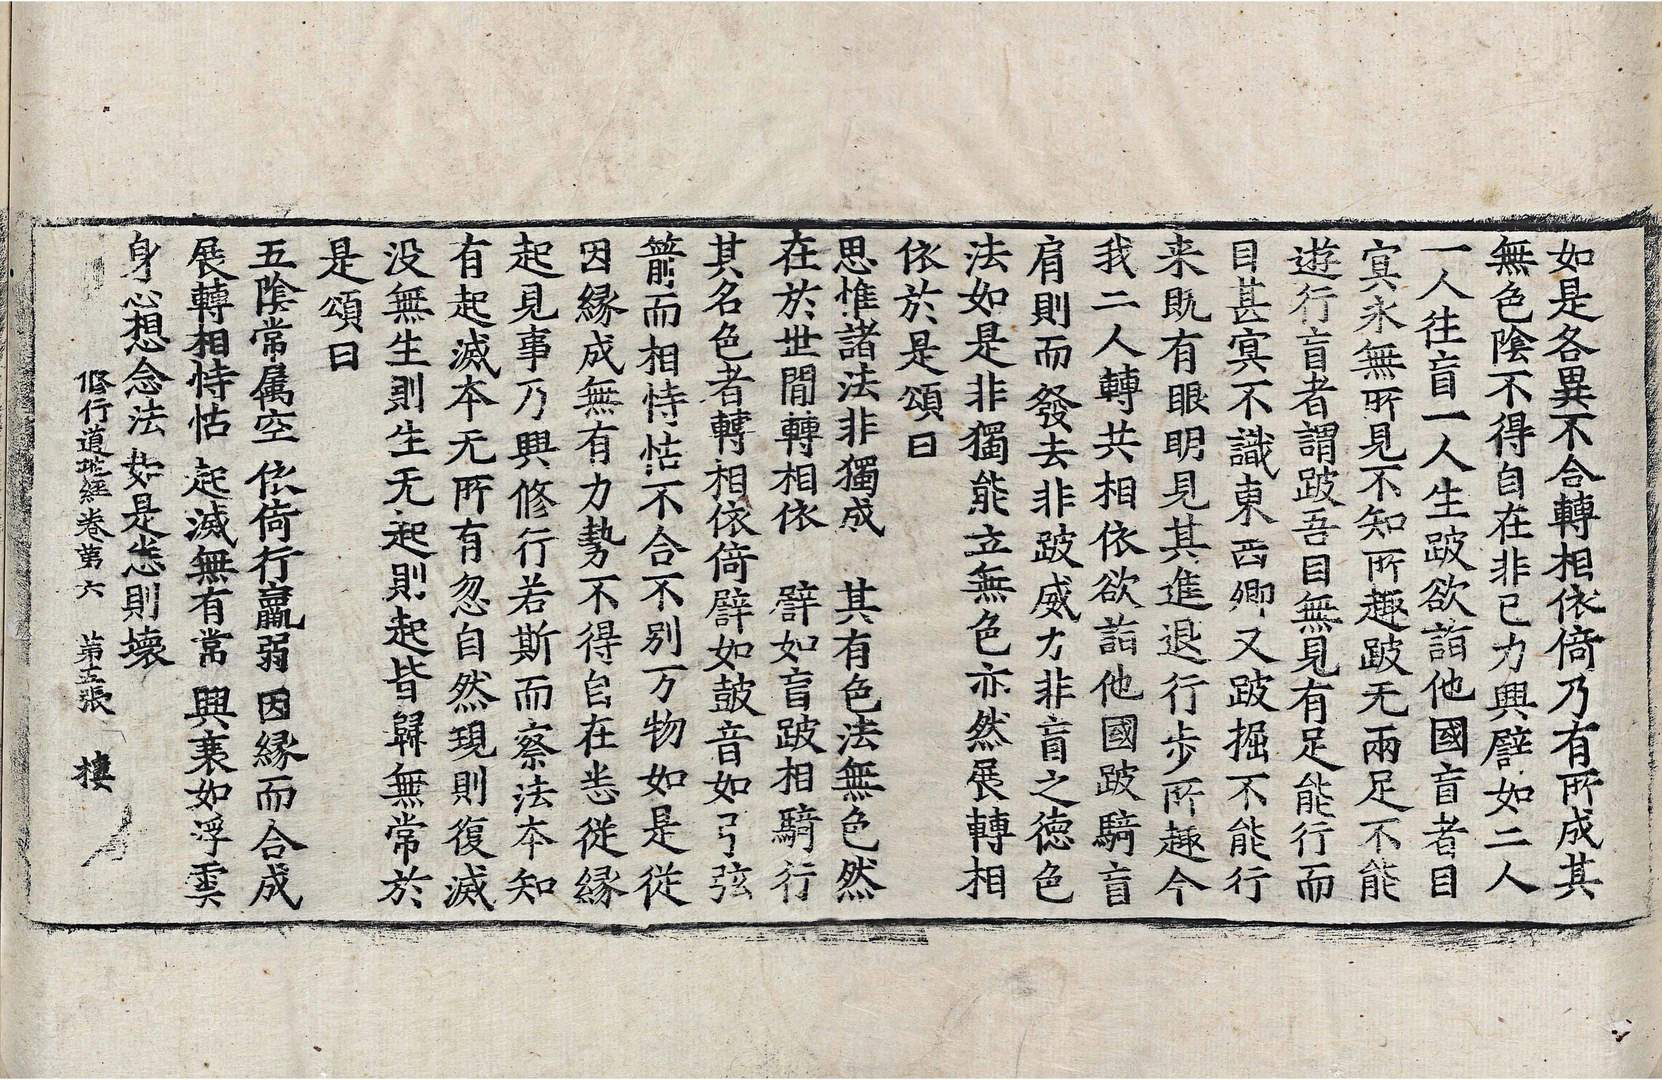 如是各異不合轉相依倚乃有所成其
無色陰不得自在非己力興譬如二人
一人往盲一人生跛欲詣他國盲者目
㝠永無所見不知所趣跛无兩足不能
遊行盲者謂跛吾目無見有足能行而
目甚㝠不識東西卿又跛掘不能行
来既有眼明見其進退行步所趣今
我二人轉共相依欲詣他國跛騎盲
肩則而發去非跛威力非盲之德色
法如是非獨能立無色亦然展轉相
依於是頌曰
思惟諸法非獨成　其有色法無色然
在於世間轉相依　譬如盲跛相騎行
其名色者轉相依倚譬如鼓音如弓弦
箭而相恃怙不合不別万物如是從
因緣成無有力勢不得自在恙從緣
起見事乃興修行若斯而察法本知
有起滅本无所有忽自然現則復滅
没無生則生无起則起皆歸無常於
是頌曰
五陰常属空　依倚行羸弱　因緣而合成
展轉相恃怙　起滅無有常　興衰如浮雲
身心想念法　如是恙則壞
修行道地經卷第六　第五張　樓